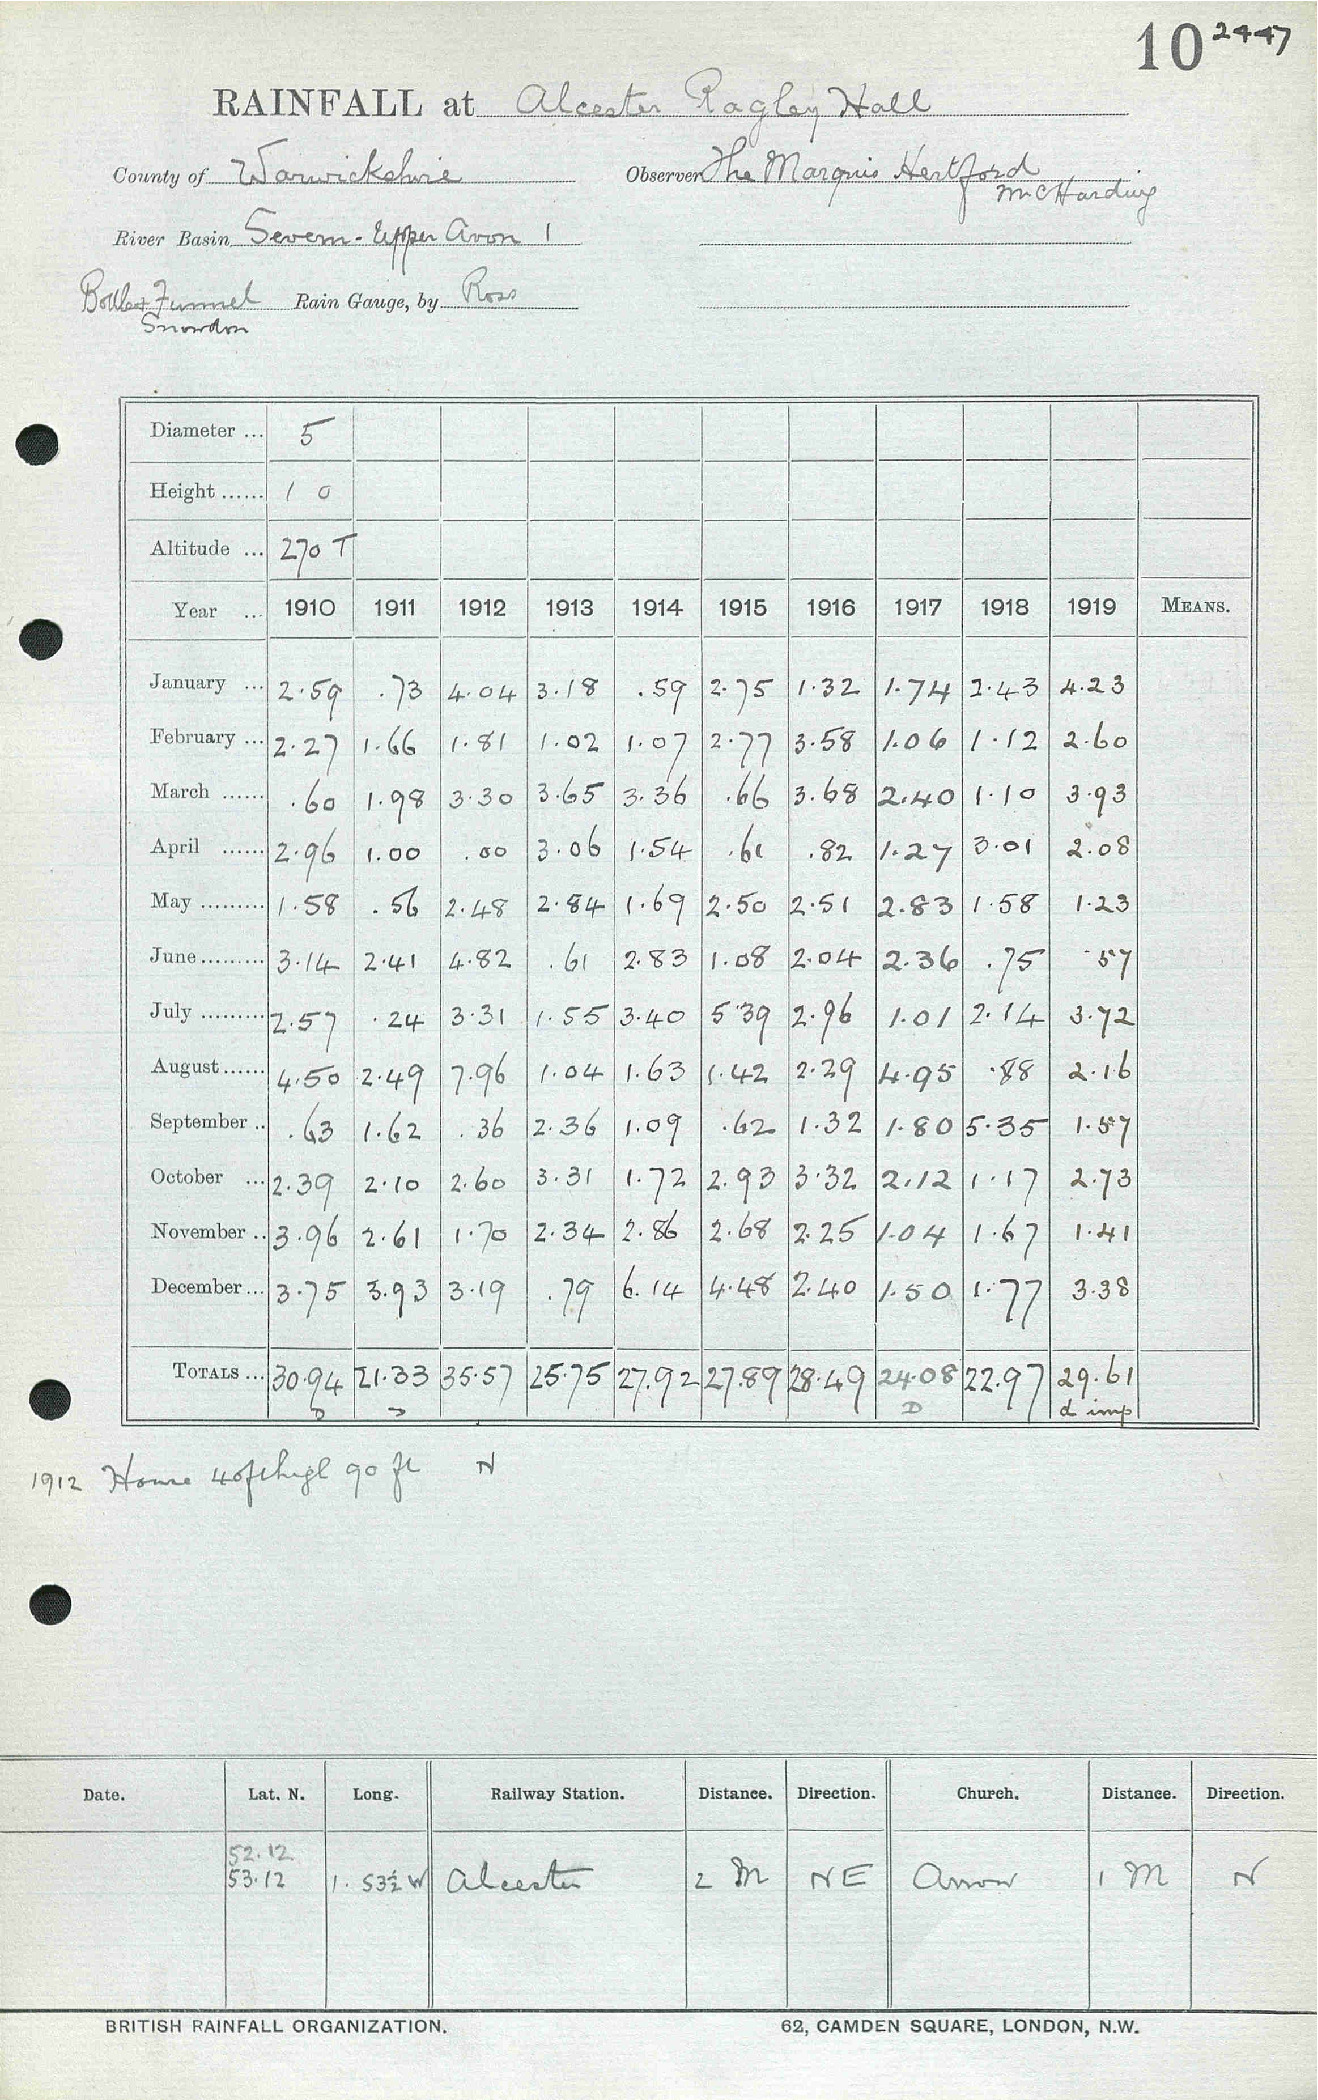 10 2447
RAINFALL at Alcester Ragley Hall
County of Warwickshire Observer The Marquis Hertford
Mr C Harding
River Basin Severn - Upper Avon 1
Bottle & Funnel Rain Gauge, by Ross
Snowdon
Diameter ... 5
Height ...... 1 0
Altitude ... 270 T
Year ... 1910 1911 1912 1913 1914 1915 1916 1917 1918 1919 MEANS.
January ... 2.59 .73 4.04 3.18 .59 2.75 1.32 1.74 2.43 4.23
February ... 2.27 1.66 1.81 1.02 1.07 2.77 3.58 1.06 1.12 2.60
March ...... .60 1.98 3.30 3.65 3.36 .66 3.68 2.40 1.10 3.93
April ...... 2.96 1.00 .00 3.06 1.54 .61 .82 1.27 3.01 2.08
May ......... 1.58 .56 2.48 2.84 1.69 2.50 2.51 2.83 1.58 1.23
June ......... 3.14 2.41 4.82 .61 2.83 1.08 2.04 2.36 .75 .57
July ......... 2.57 .24 3.31 1.55 3.40 5.39 2.96 1.01 2.14 3.72
August ...... 4.50 2.49 7.96 1.04 1.63 1.42 2.29 4.95 .88 2.16
September .. .63 1.62 .36 2.36 1.09 .62 1.32 1.80 5.35 1.57
October ... 2.39 2.10 2.60 3.31 1.72 2.93 3.32 2.12 1.17 2.73
November .. 3.96 2.61 1.70 2.34 2.86 2.68 2.25 1.04 1.67 1.41
December ... 3.75 3.93 3.19 .79 6.14 4.48 2.40 1.50 1.77 3.38
TOTALS ... 30.94 21.33 35.57 25.75 27.92 27.89 28.49 24.08 22.97 29.61
D d imp
1912 House 40ft high 90 ft N
Date. Lat. N. Long. Railway Station. Distance. Direction. Church. Distance. Direction.
52.12
53.12 1. 53½ W Alcester 2 M NE Arrow 1 M N
BRITISH RAINFALL ORGANIZATION. 62, CAMDEN SQUARE, LONDON, N.W.